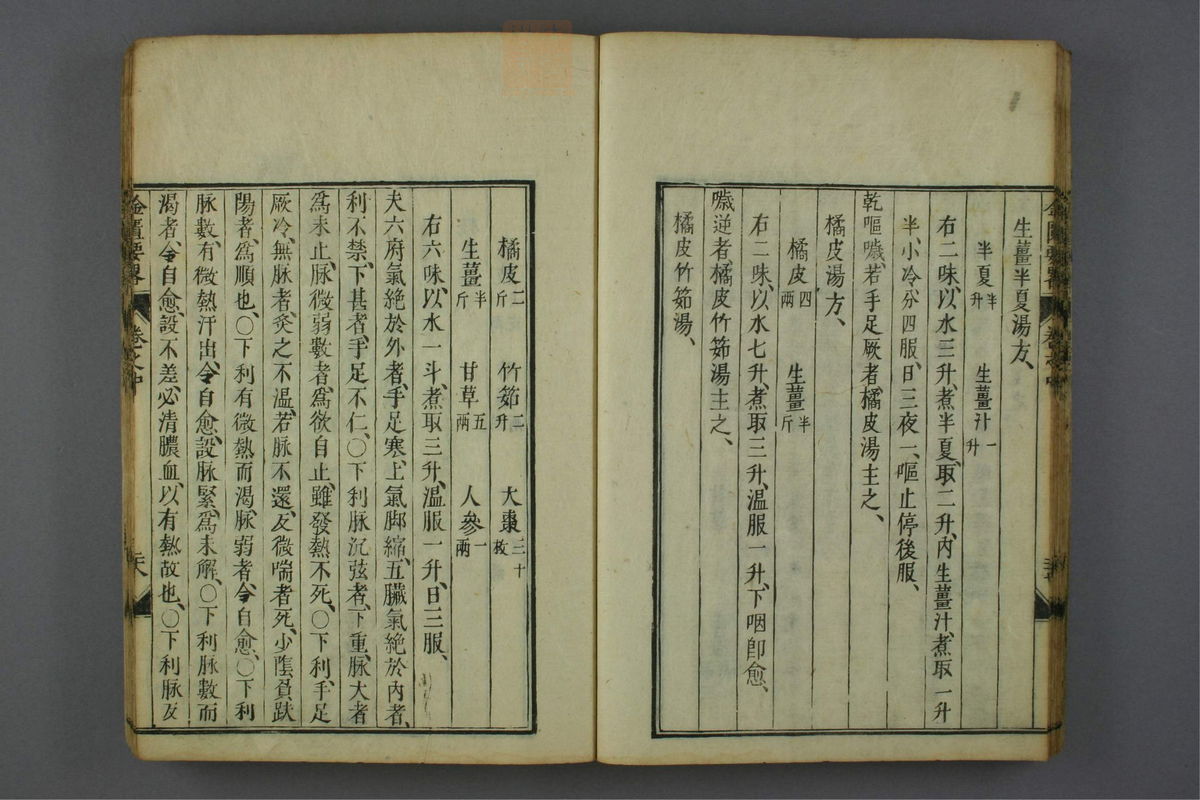 生薑半夏湯方、
半夏半升　生薑汁一升
右二味、以水三升、煮半夏、取二升、內生薑汁、煮取一升
半、小冷、分四服、日三夜一、嘔止停後服、
乾嘔噦、若手足厥者、橘皮湯主之、
橘皮湯方、
橘皮四兩　生薑半斤
右二味、以水七升、煮取三升、溫服一升、下咽即愈、
噦逆者、橘皮竹筎湯主之、
橘皮竹筎湯、
橘皮二斤　竹筎二升　大棗三十枚
生薑半斤　甘草五兩　人參一兩
右六味、以水一斗、煮取三升、溫服一升、日三服、
夫六府氣絕於外者、手足寒、上氣脚縮、五臟氣絕於內者、
利不禁、下甚者、手足不仁、〇下利脉沉弦者、下重、脉大者
爲未止、脉微弱數者、爲欲自止、雖發熱不死、〇下利、手足
厥冷、無脉者、灸之不溫、若脉不還、反微喘者死、少陰負趺
陽者、爲順也、〇下利有微熱而渴、脉弱者、令自愈、〇下利
脉數、有微熱汗出、令自愈、設脉緊、爲未解、〇下利脉數而
渴者、令自愈、設不差、必清膿血、以有熱故也、〇下利脉反
金匱要畧　卷之中